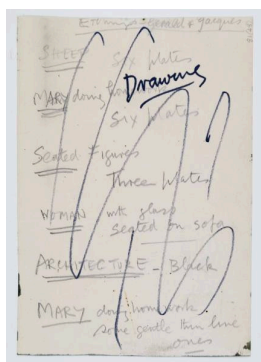 Etchings
SHEEP Six plates
Drawing
MARY doing
Six plates
Seated Figures
Three Plates
WOMAN with glass
seated on sofa
ARCHITECTURE - Black
MARY doing homework
some gentle thin line
ones